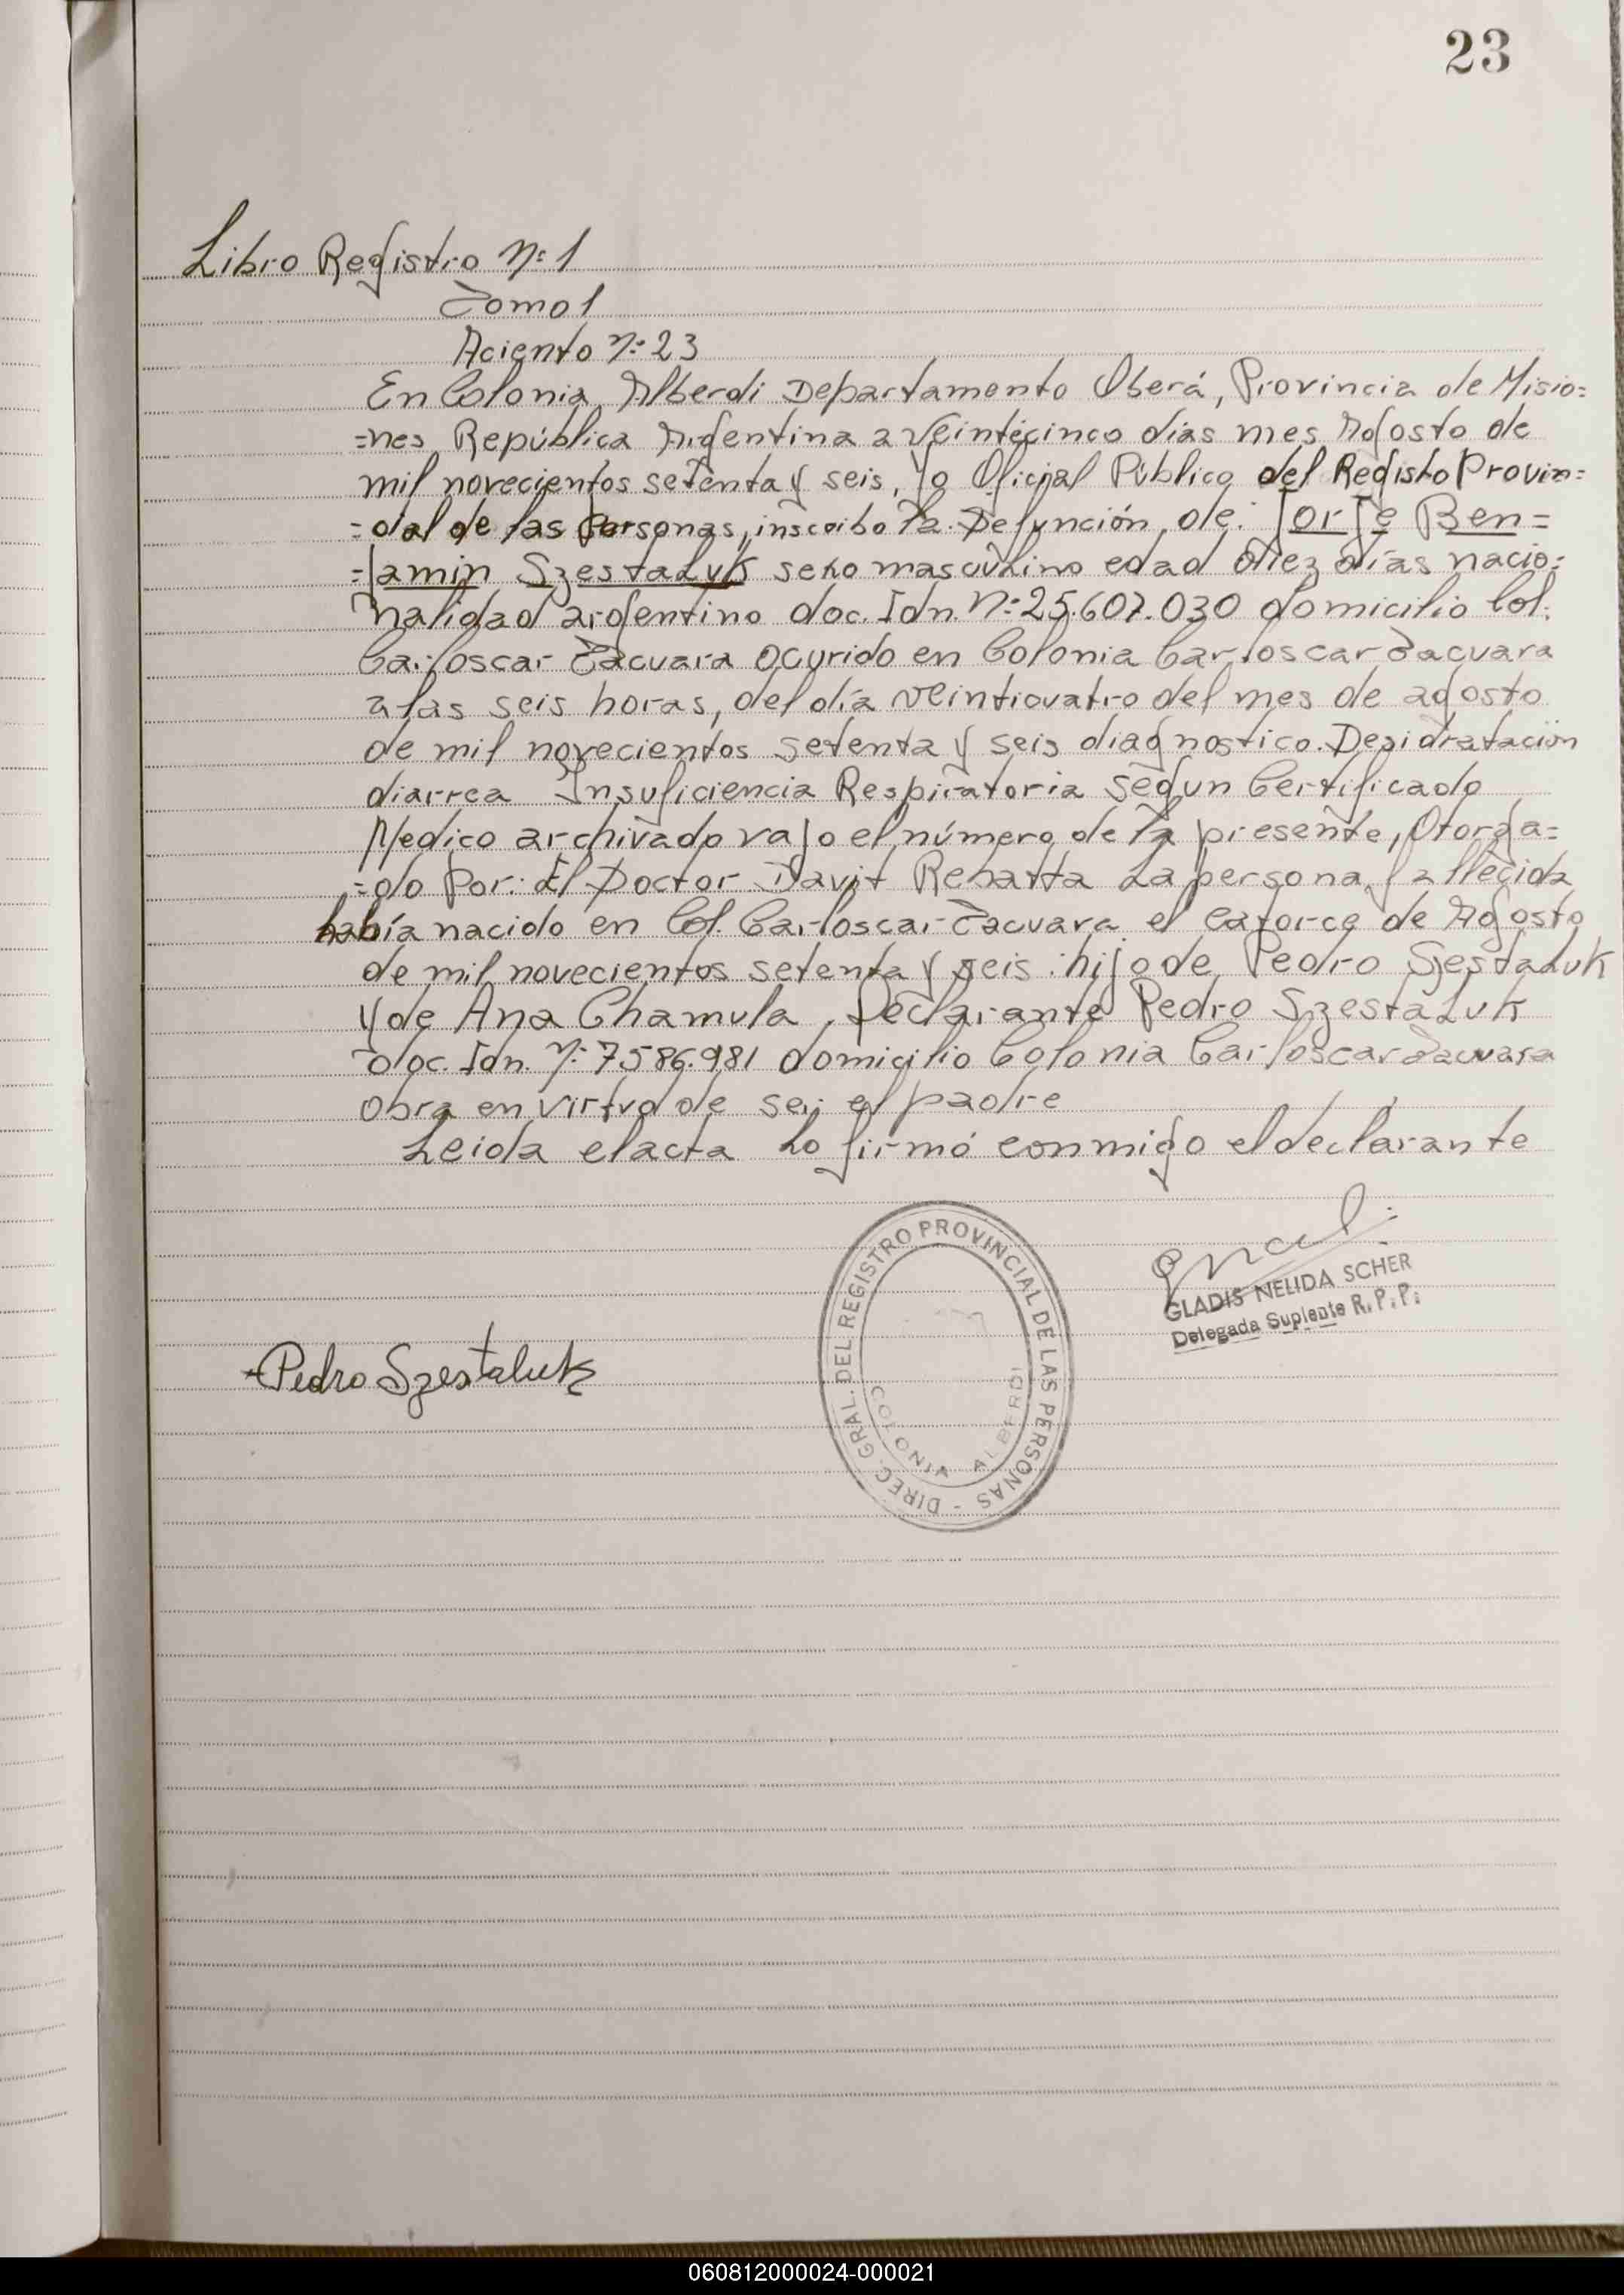 23
Libro Registro N:1
Tomo 1
Aciento N:23
En Colonia Alberdi Departamento Oberá, Provincia de Misio=
=nes República Argentina a veintécinco días mes Agosto de
mil novecientos setenta y seis, Yo Oficial Público del Registo Provin=
=cial de las Personas, inscribo la Defunción de: Jorje Ben=
=jamin Szestaluk sexo masculino edad diez días nacio=
nalidad argentino doc. Idn. N:25.607.030 domicilio Col.
Carloscar Tacuara Ocurido en Colonia Carloscar Tacuara
a las seis horas, del día veinticuatro del mes de agosto
de mil novecientos setenta y seis diagnostico. Desidratación
diarrea Insuficiencia Respiratoria segun Certificado
Medico archivado vajo el número de la presente, Otorga=
=do Por: El Doctor Davit Rebatta La persona fallecida
había nacido en Col. Carloscar Tacuara el catorce de Agosto
de mil novecientos setenta y seis hijo de Pedro Szestaluk
y de Ana Chamula, Declarante Pedro Szestaluk
doc. Idn. N:7586.981 domicilio Colonia Carloscar Tacuara
Obra en virtud de ser el padre
Leida el acta Lo firmó conmigo el declarante
DIREC. GRAL. DEL REGISTRO PROVINCIAL DE LAS PERSONAS -
COLONIA ALBERDI
GLADIS NELIDA SCHER
Delegada Suplente R.P.P.
Pedro Szestaluk
060812000024-000021